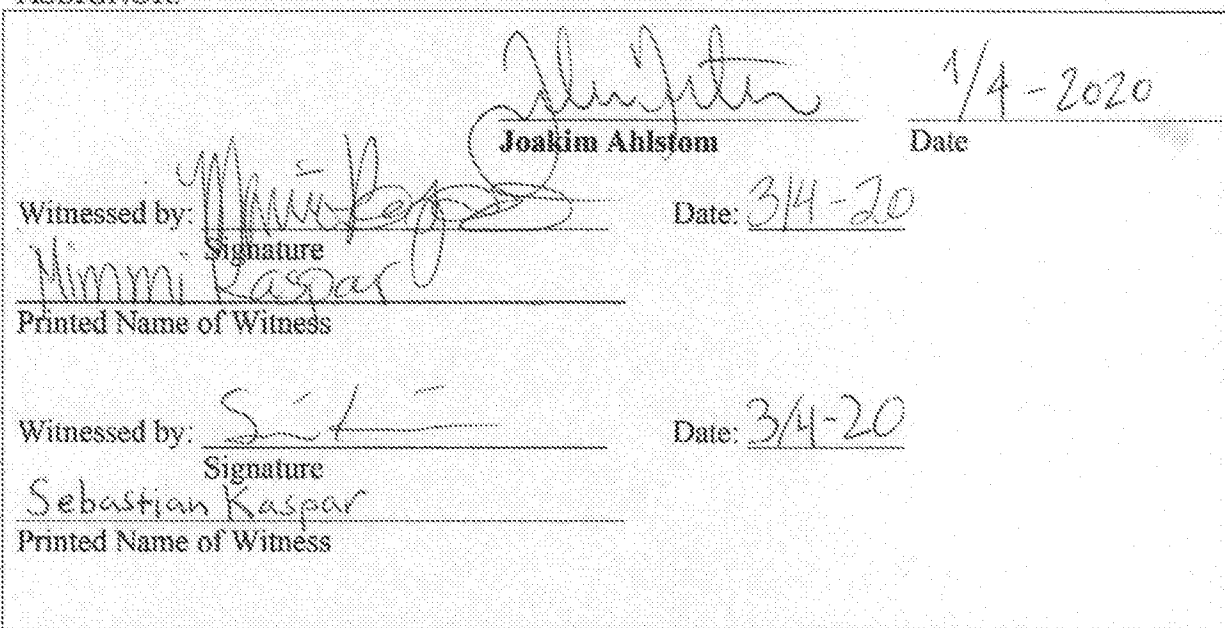 1/4-2020
Joakim Ahlstom Date
Witnessed by: Date: 3/4-20
Signature
Mimmi Kaspar
Printed Name of Witness
Witnessed by: Date: 3/4-20
Signature
Sebastian Kaspar
Printed Name of Witness